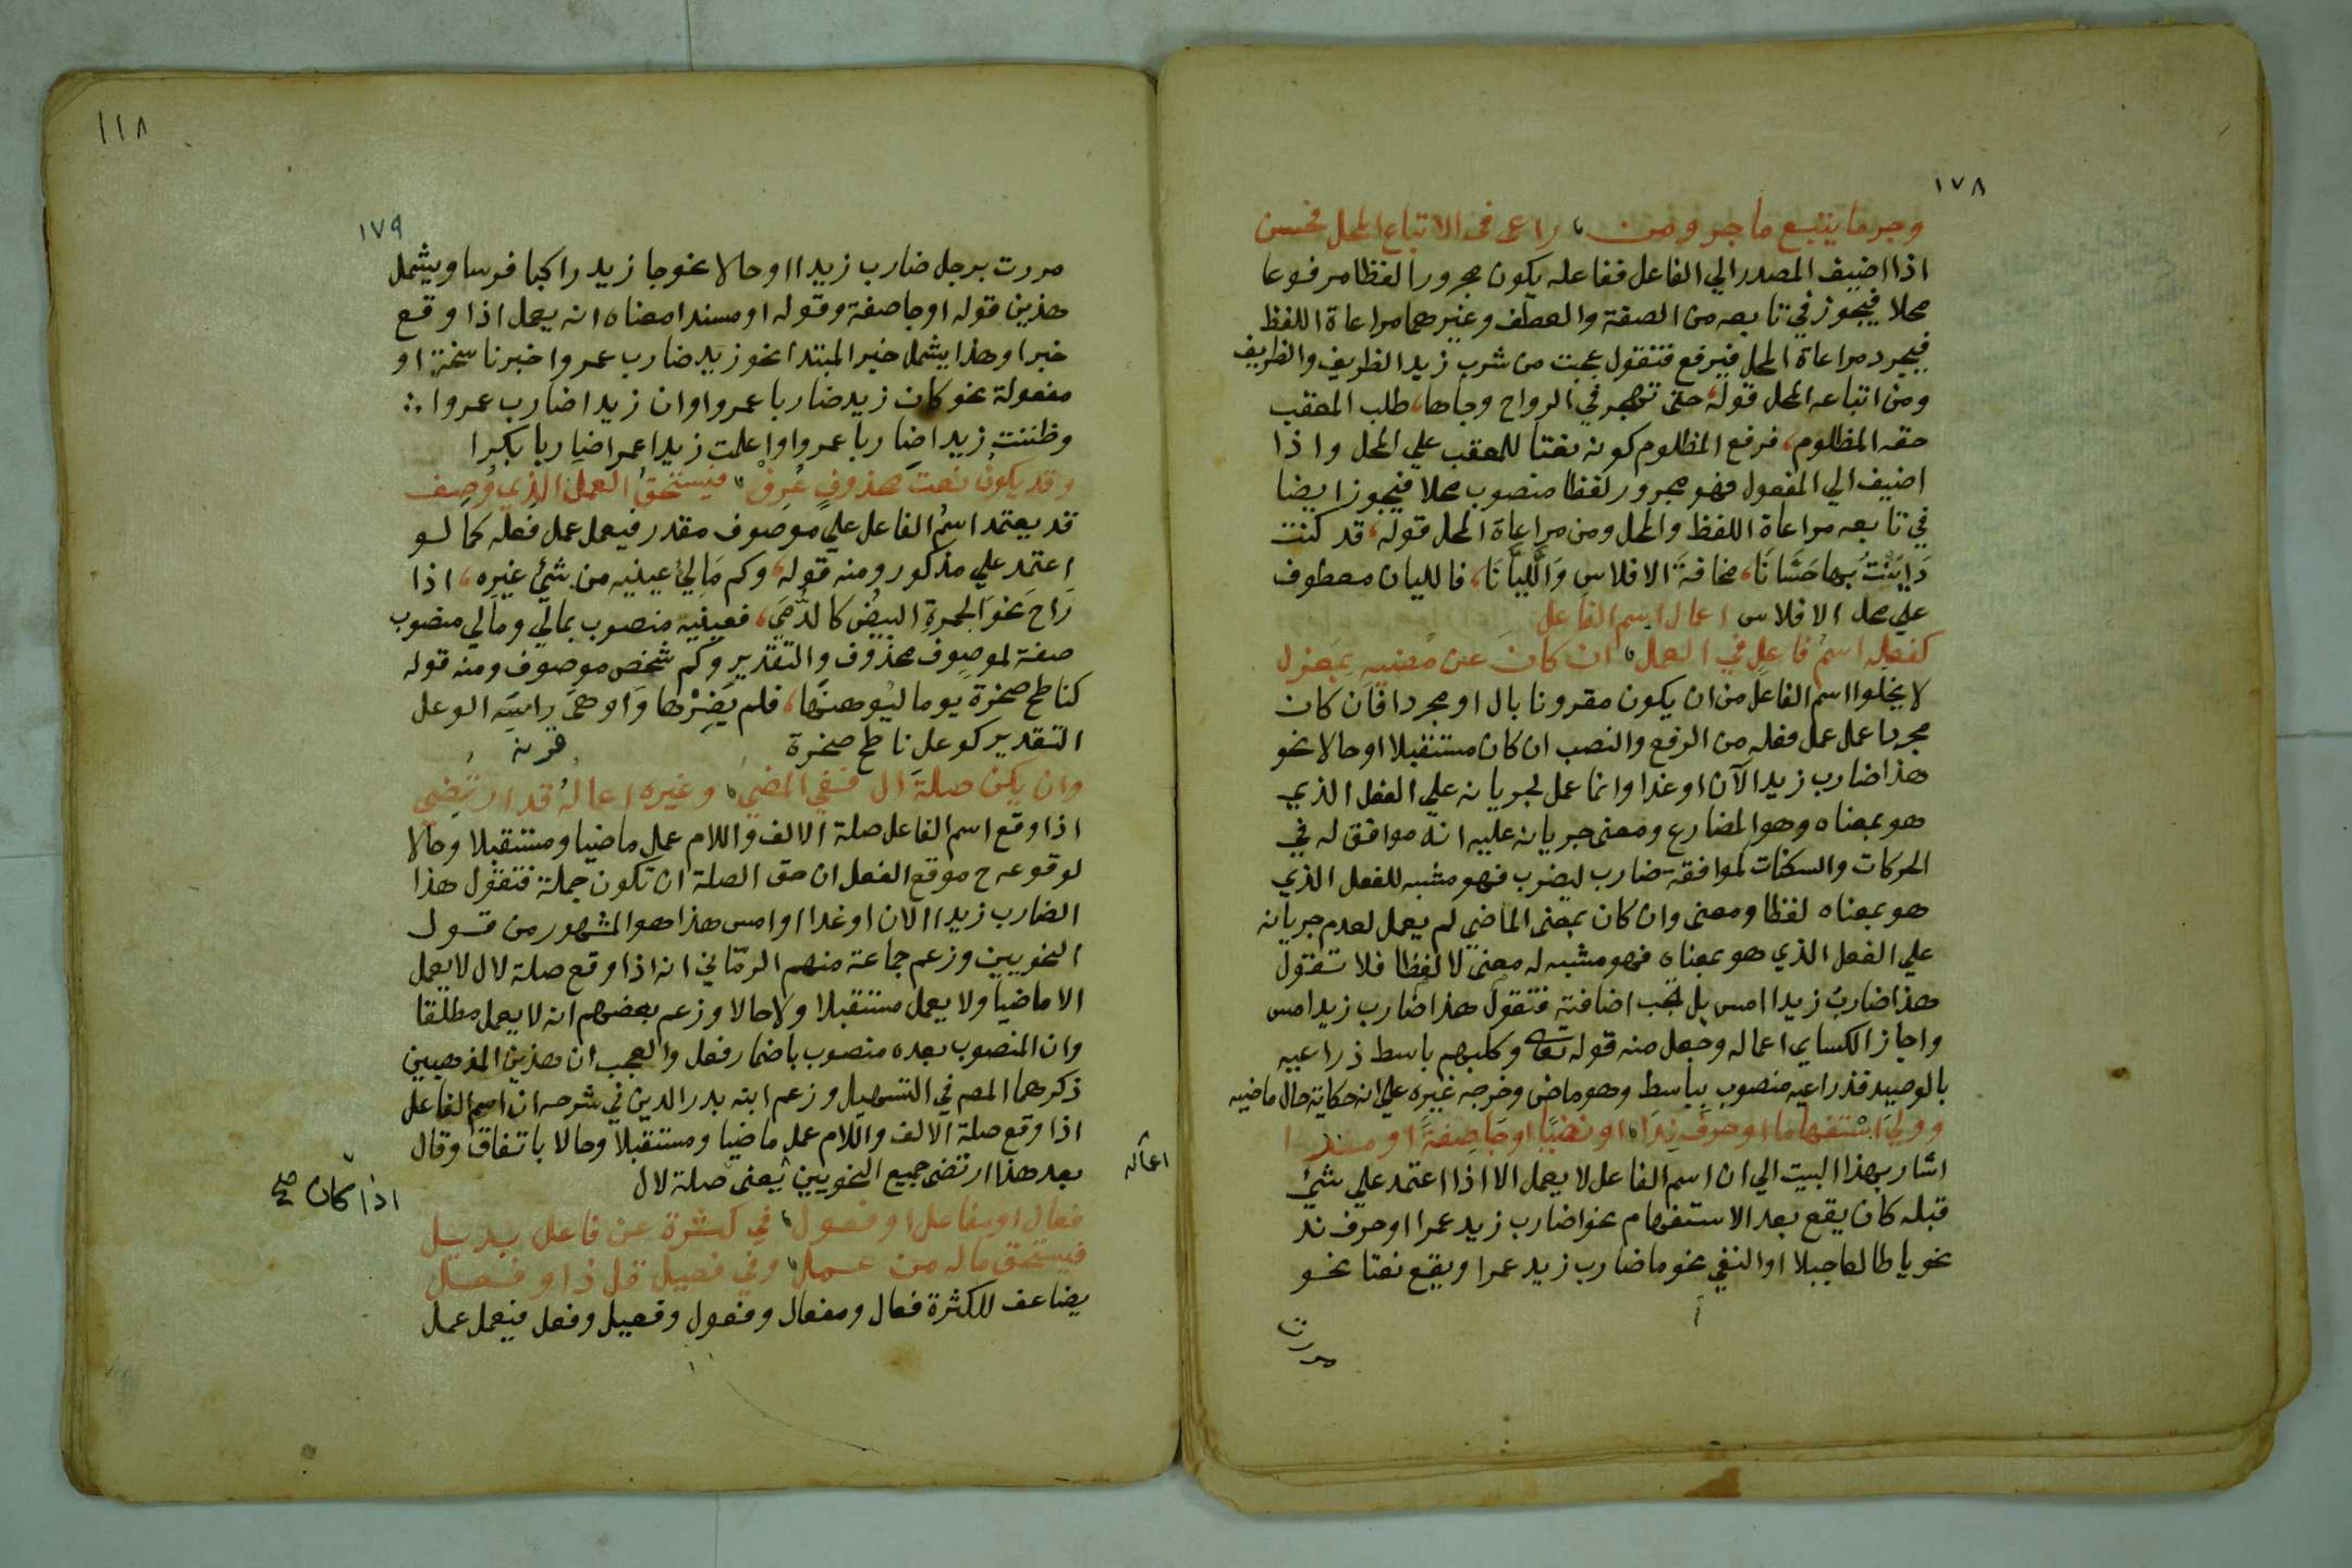 ١٧٨
وجر ما يتبع ما جر ومن راعى في الاتباع المحل فحسن
اذا اضيف المصدر الي الفاعل ففاعله يكون مجرورا لفظا مرفوعا
محلا فيجوز في تابعه من الصفة والعطف وغيرهما مراعاة اللفظ
فيجر ومراعاة المحل فيرفع فتقول عجبت من شرب زيد الظريف والظريف
ومن اتباعه المحل قوله حتى تهجر في الرواح وهاجها، طلب المعقب
حقه المظلوم، فرفع المظلوم كونه نعتا للمعقب علي المحل واذا
اضيف الي المفعول فهو مجرور لفظا منصوب محلا فيجوز ايضا
في تابعه مراعاة اللفظ والمحل ومن مراعاة المحل قوله، قد كنت
دَايَنْتُ بها حَسَّانَا، مخافةَ الافلاسِ وَاللَّيَّانَا، فالليان معطوف
علي محل الافلاس اعمال اسم الفاعل
كفعله اسمُ فاعلٍ في العمل ان كانَ عن مُضيِه بمَعزل
لا يخلوا اسم الفاعل من ان يكون مقرونا بال او مجردا فان كان
مجردا عمل عمل فعله من الرفع والنصب ان كان مستقبلا او حالا نحو
هذا ضارب زيدا الآن او غدا وانما عمل لجريانه علي الفعل الذي
هو بمعناه وهو المضارع ومعنى جريانه عليه انه موافق له في
الحركات والسكنات لموافقة ضارب ليضرب فهو مشبه للفعل الذي
هو بمعناه لفظا ومعنى وان كان بمعنى الماضي لم يعمل لعدم جريانه
علي الفعل الذي هو بمعناه فهو مشبه له معنى لا لفظا فلا تقول
هذا ضاربٌ زيدا امس بل تجب اضافته فتقول هذا ضارب زيد امس
واجاز الكساي اعماله وجعل منه قوله تعالى وكلبهم باسط ذراعيه
بالوصيد فذراعيه منصوب بباسط وهو ماض وخرجه غيره علي انه حكاية حال ماضيه
وولي استفهاما او حرف نِدَا او نفيا او جا صِفةً او مسندا
اشار بهذا البيت الي ان اسم الفاعل لا يعمل الا اذا اعتمد علي شئ
قبله كان يقع بعد الاستفهام نحو اضارب زيد عمرا او حرف ندا
نحو يا طالعا جبلا او النفي نحو ما ضارب زيد عمرا او يقع نعتا نحو
مررت
١١٨
١٧٩
مررت برجل ضارب زيدا او حالا نحو جا زيد راكبا فرسا ويشمل
هذين قوله او جا صفة وقوله او مسندا معناه انه يعمل اذا وقع
خبرا وهذا يشمل خبر المبتدا نحو زيد ضارب عمروا خبر ناسخة او
مفعولة نحو كان زيد ضاربا عمروا وان زيدا ضارب عمروا
وظننت زيدا ضاربا عمروا واعلمت زيدا عمرا ضاربا بكرا
وقد يكونُ نعتَ محذوفٍ عُرِفْ فيستحقُ العملَ الذي وُصِف
قد يعتمد اسمُ الفاعل علي موصوف مقدر فيعمل عمل فعله كما لو
اعتمد علي مذكور ومنه قوله، وكم مَالِئٍ عينيه من شئ غيرِه، اذا
رَاحَ نحوَ الجمرةِ البيضُ كالدُّمَي، فعينيه منصوب بمالي ومالي منصوب
صفة لموصوف محذوف والتقدير وكم شخص موصوف ومنه قوله
كناطح صخرة يوما ليوهنها، فلم يَضِرْها وَاوهَى راسَه الوعل
التقدير كوعل ناطح صخرة
قرنه
وان يكن صلةَ ال فَفِي المضي وغيره اعمالهُ قد ارتُضِي
اذا وقع اسم الفاعل صلة الالف واللام عمل ماضيا ومستقبلا وحالا
لوقوعه ح موقع الفعل ان حق الصلة ان تكون جملة فتقول هذا
الضارب زيدا الان او غدا او امس هذا هو المشهور من قول
النحويين وزعم جماعة منهم الرمّاني انه اذا وقع صلة لال لا يعمل
الا ماضيا ولا يعمل مستقبلا ولا حالا وزعم بعضهم انه لا يعمل مطلقا
وان المنصوب بعده منصوب باضمار فعل والعجب ان هذين المذهبين
ذكرهما المص في التسهيل وزعم ابنه بدر الدين في شرحه ان اسم الفاعل
اذا وقع صلة الالف واللام عمل ماضيا ومستقبلا وحالا باتفاق وقال
بعد هذا ارتضى جميع النحويين يعنى صلة لال
اعماله
اذا كان صح
فعال او مفعال او فعول في كثرة عن فاعل بديل
فيستحق ماله من عمل وفي فعيل قل ذا وفعل
يضاعف للكثرة فعال ومفعال وفعول وفعيل وفعل فيعمل عمل